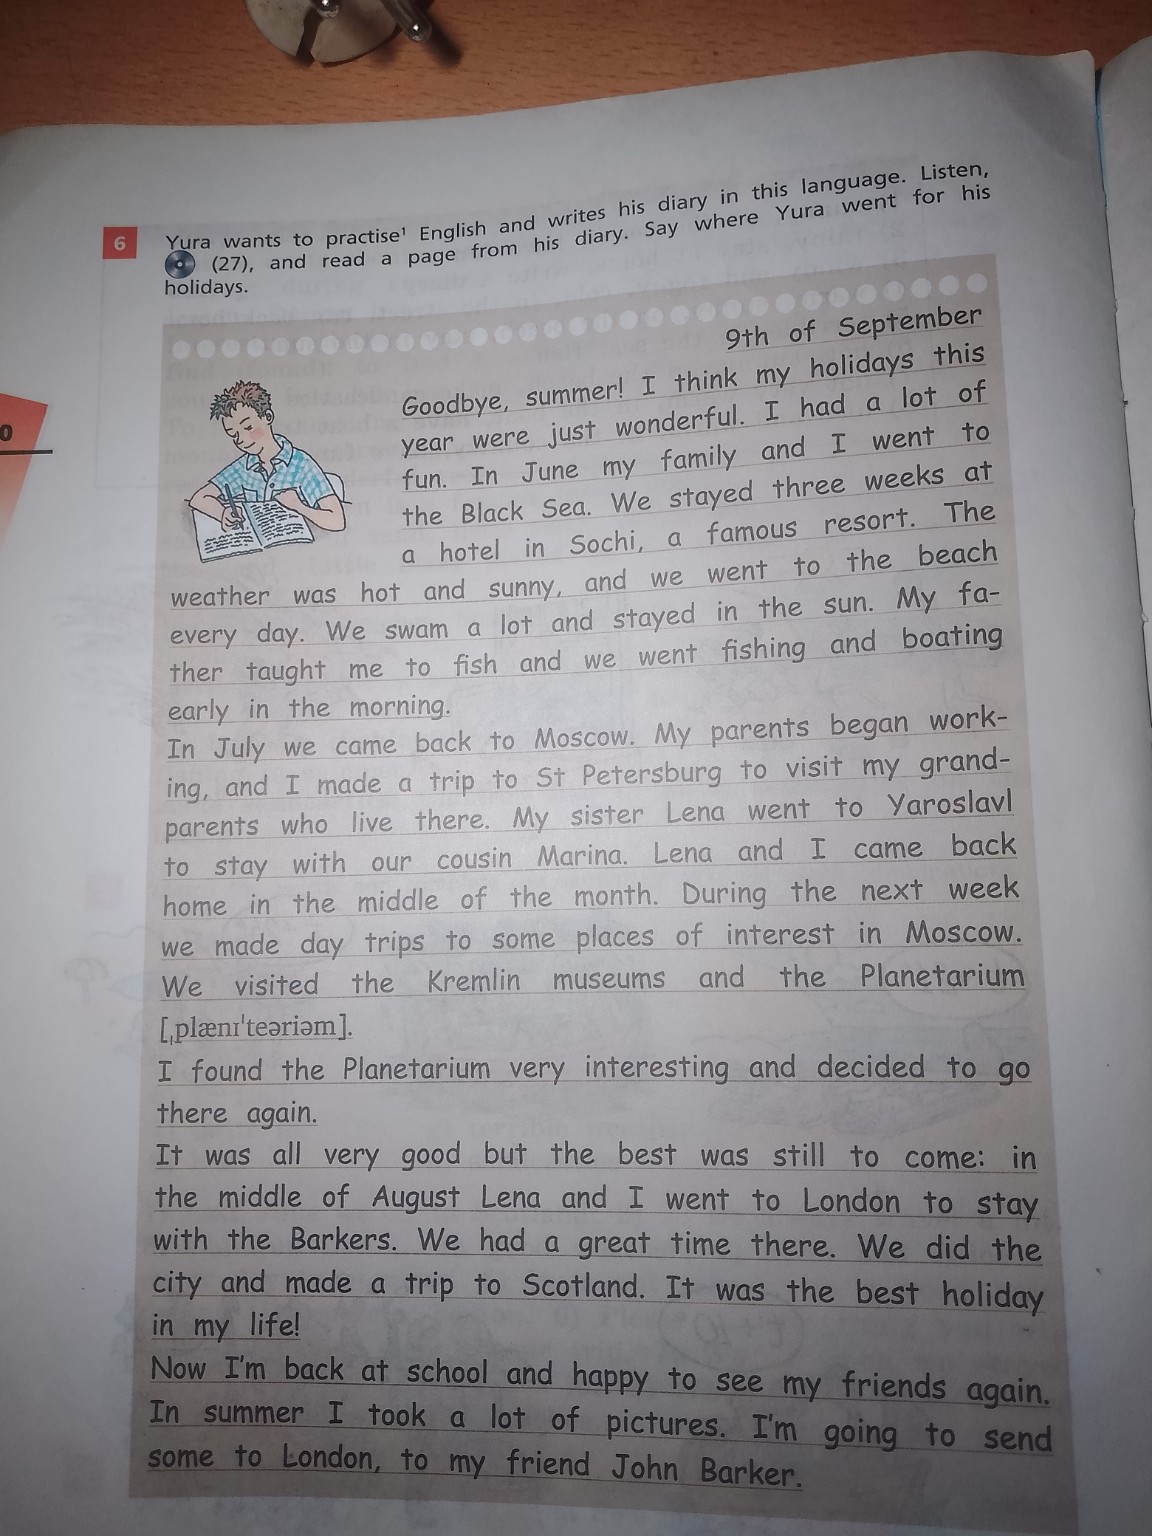 6 Yura wants to practise¹ English and writes his diary in this language. Listen,
(27), and read a page from his diary. Say where Yura went for his
holidays.
0
9th of September
Goodbye, summer! I think my holidays this
year were just wonderful. I had a lot of
fun. In June my family and I went to
the Black Sea. We stayed three weeks at
a hotel in Sochi, a famous resort. The
weather was hot and sunny, and we went to the beach
every day. We swam a lot and stayed in the sun. My fa-
ther taught me to fish and we went fishing and boating
early in the morning.
In July we came back to Moscow. My parents began work-
ing, and I made a trip to St Petersburg to visit my grand-
parents who live there. My sister Lena went to Yaroslavl
to stay with our cousin Marina. Lena and I came back
home in the middle of the month. During the next week
we made day trips to some places of interest in Moscow.
We visited the Kremlin museums and the Planetarium
[ˌplænɪˈteəriəm].
I found the Planetarium very interesting and decided to go
there again.
It was all very good but the best was still to come: in
the middle of August Lena and I went to London to stay
with the Barkers. We had a great time there. We did the
city and made a trip to Scotland. It was the best holiday
in my life!
Now I'm back at school and happy to see my friends again.
In summer I took a lot of pictures. I'm going to send
some to London, to my friend John Barker.